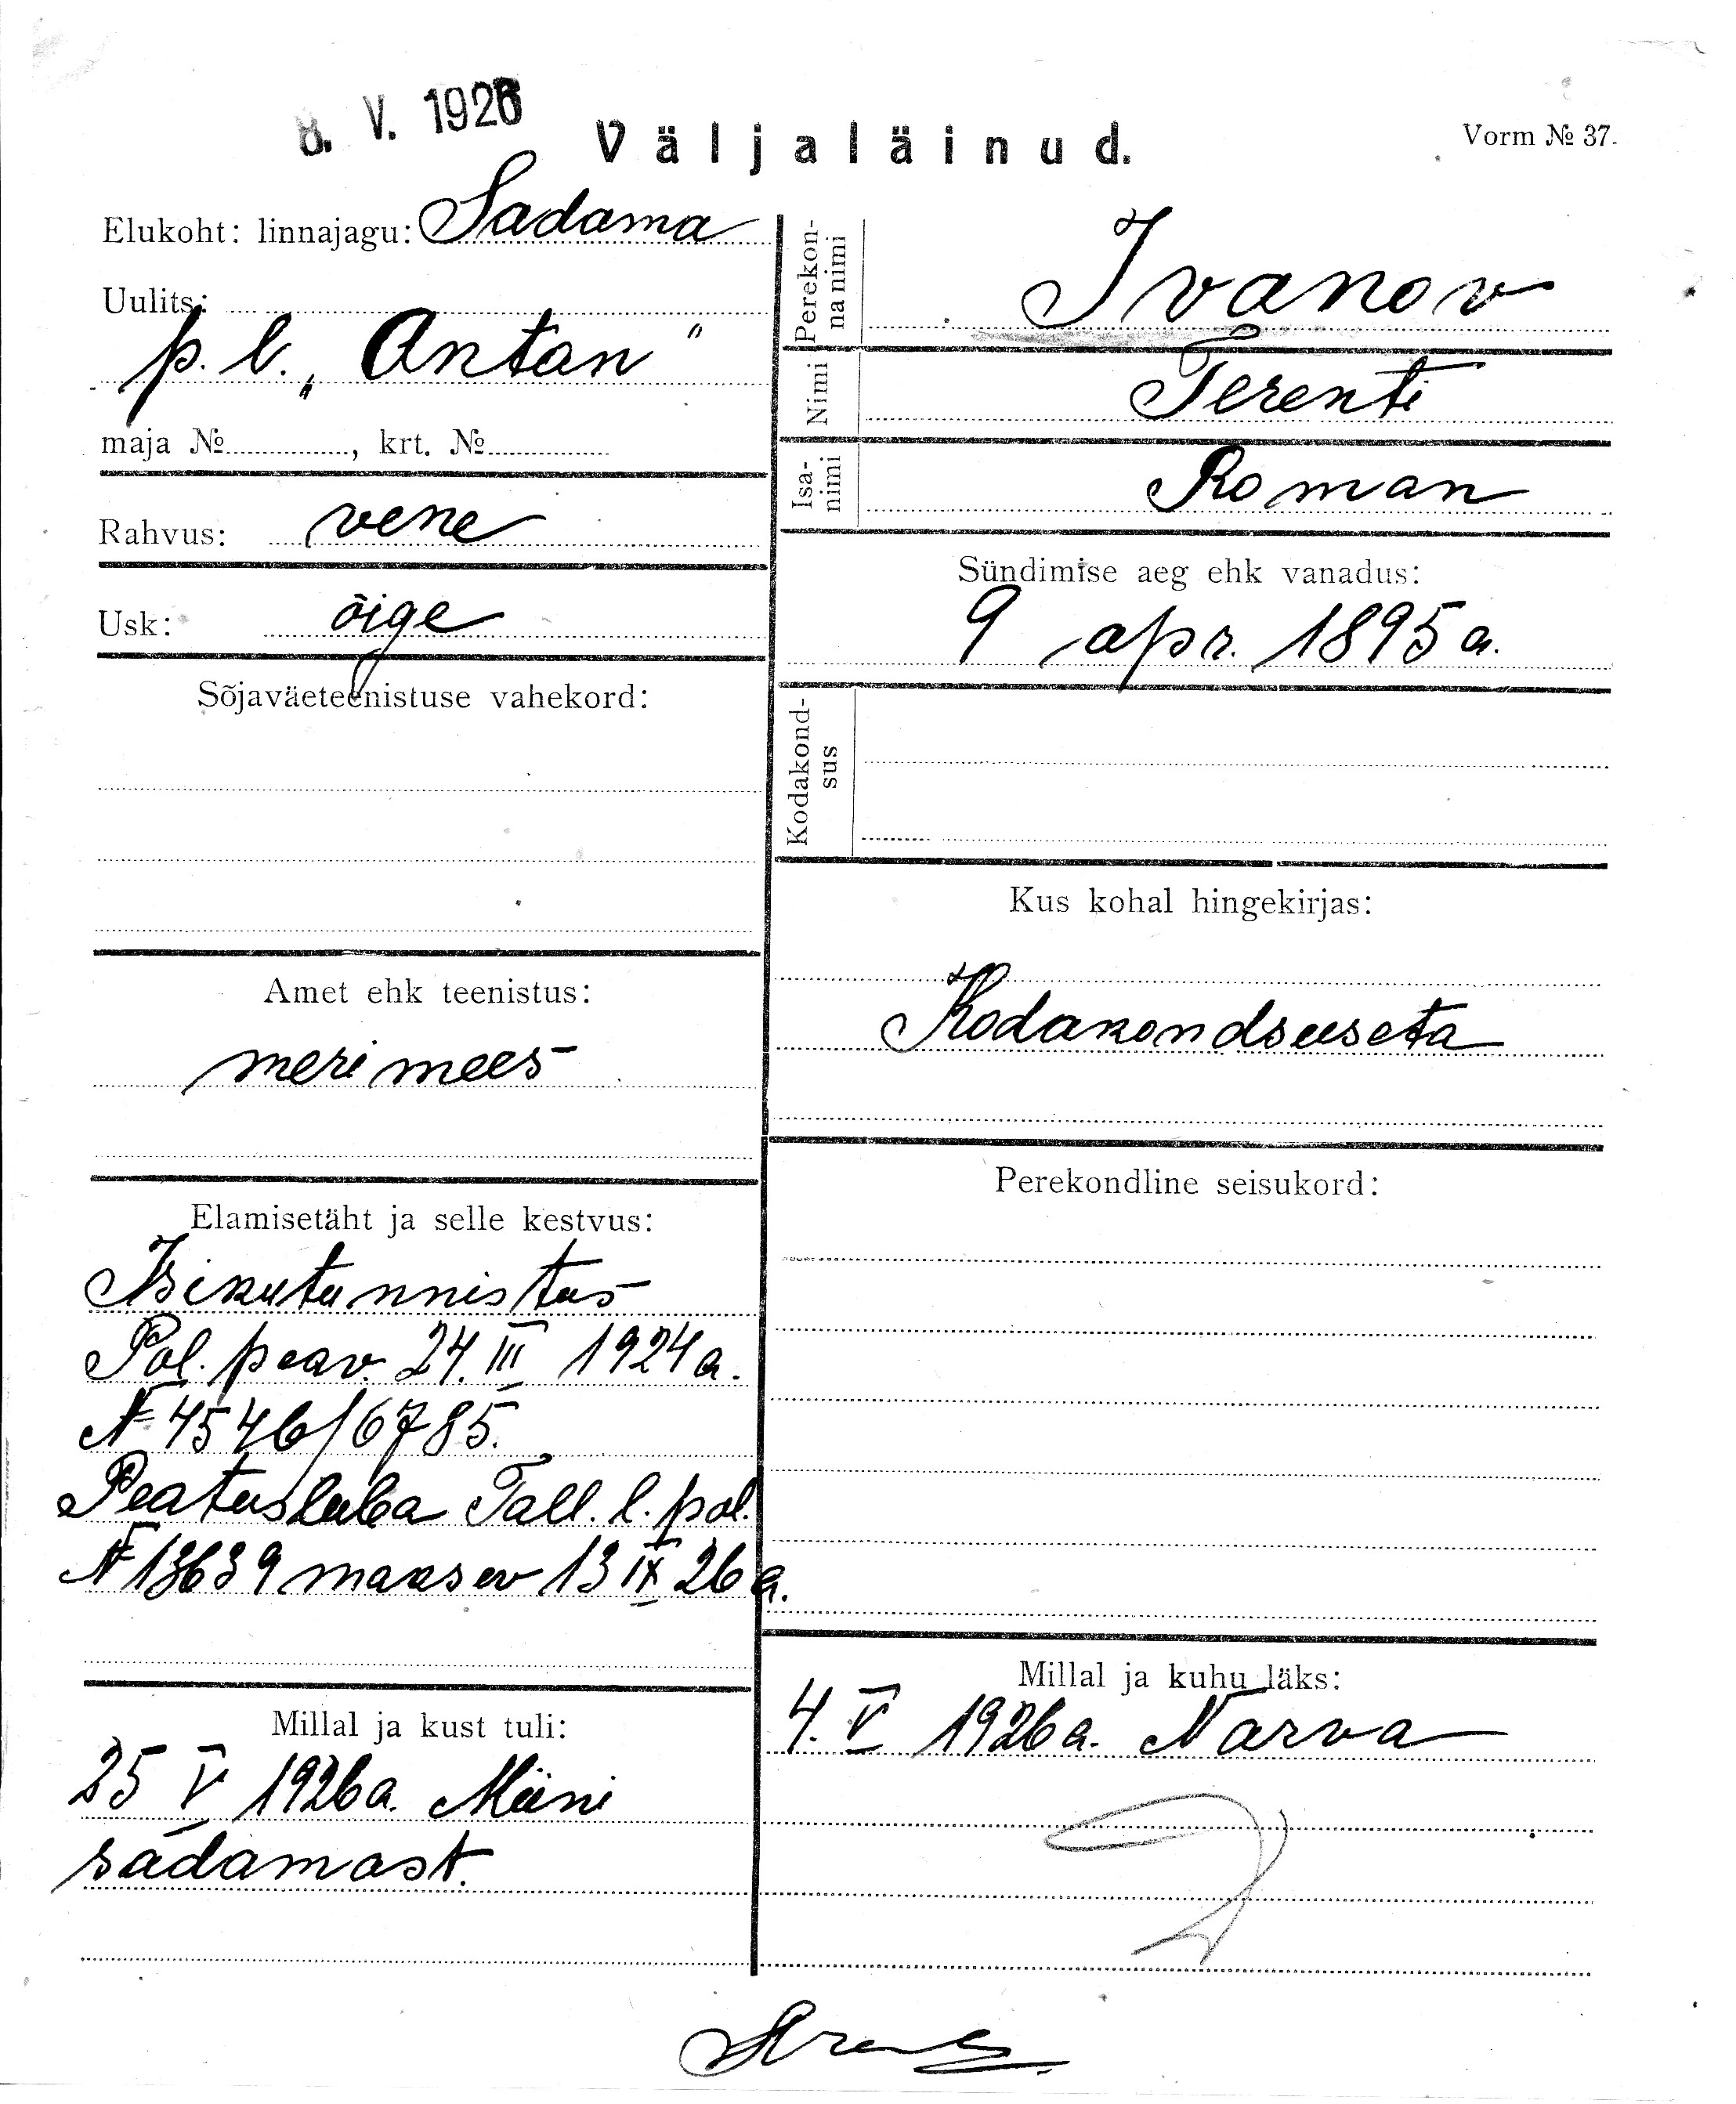 8. V. 1926
Väljaläinud.
Vorm № 37.
Elukoht: linnajagu: Sadama
Uulits:
p. l. „Antan"
maja №, krt. №
Rahvus: vene
Usk: õige
Sõjaväeteenistuse vahekord:
Amet ehk teenistus:
merimees
Elamisetäht ja selle kestvus:
Isikutunnistus
Pol. peav. 24. III 1924 a.
N 4546/6785.
Peatusluba Tall. l. pol.
N 13639 maksev 13 IX 26 a.
Millal ja kust tuli:
25 V 1926 a. Miini
sadamast.
Perekon-
na nimi
Ivanov
Nimi
Terenti
Isa-
nimi
Roman
Sündimise aeg ehk vanadus:
9 apr. 1895 a.
Kodakond-
sus
Kus kohal hingekirjas:
Kodakondsuseta
Perekondline seisukord:
Millal ja kuhu läks:
4. V 1926 a. Narva